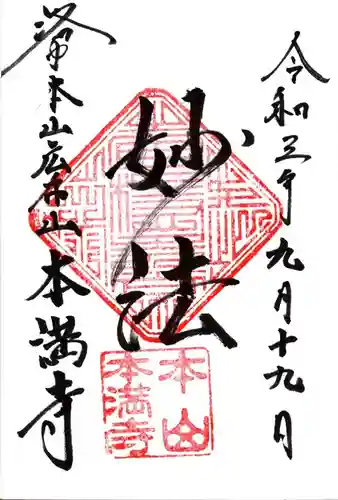 令和三年九月十九日
妙法
洛中本山広布山本満寺
本山
本満寺